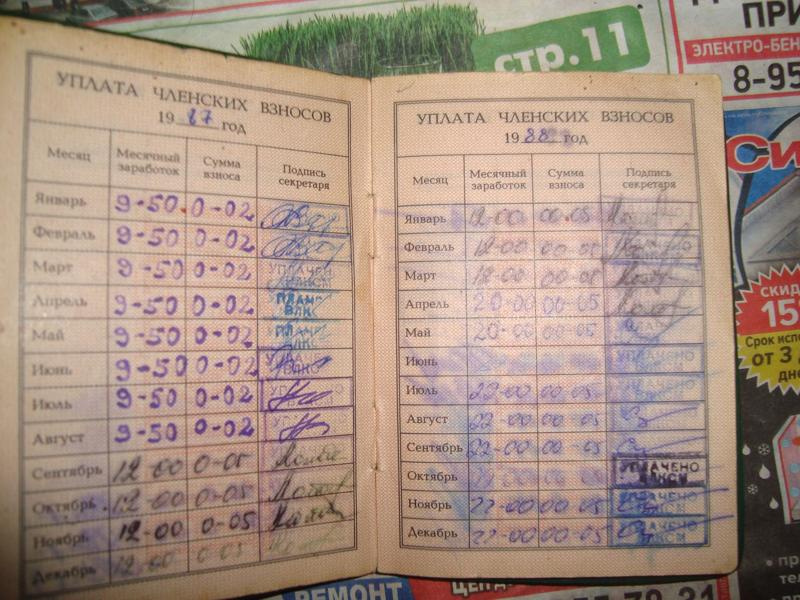 стр.11
ПРИ
ЭЛЕКТРО-БЕН
8-95
УПЛАТА ЧЛЕНСКИХ ВЗНОСОВ
1987 год
Месяц Месячный заработок Сумма взноса Подпись секретаря
Январь 9-50 0-02
Февраль 9-50 0-02
Март 9-50 0-02 УПЛАЧЕНО ВЛКСМ
Апрель 9-50 0-02
Май 9-50 0-02
Июнь 9-50 0-02
Июль 9-50 0-02
Август 9-50 0-02
Сентябрь 12-00 0-05
Октябрь 12-00 0-05
Ноябрь 12-00 0-05
Декабрь 12-00 0-05
УПЛАТА ЧЛЕНСКИХ ВЗНОСОВ
1988 год
Месяц Месячный заработок Сумма взноса Подпись секретаря
Январь 12-00 00-05
Февраль 12-00 00-05
Март
Апрель 20-00 00-05
Май 20-00 00-05
Июнь УПЛАЧЕНО
Июль 22-00 00-05
Август 22-00 00-05
Сентябрь 22-00 00-05
Октябрь УПЛАЧЕНО ВЛКСМ
Ноябрь 22-00 00-05 УПЛАЧЕНО
Декабрь 22-00 00-05 УПЛАЧЕНО ВЛКСМ
Си
СКИД
15
Срок испо
от 3 д
дне
РЕМОНТ